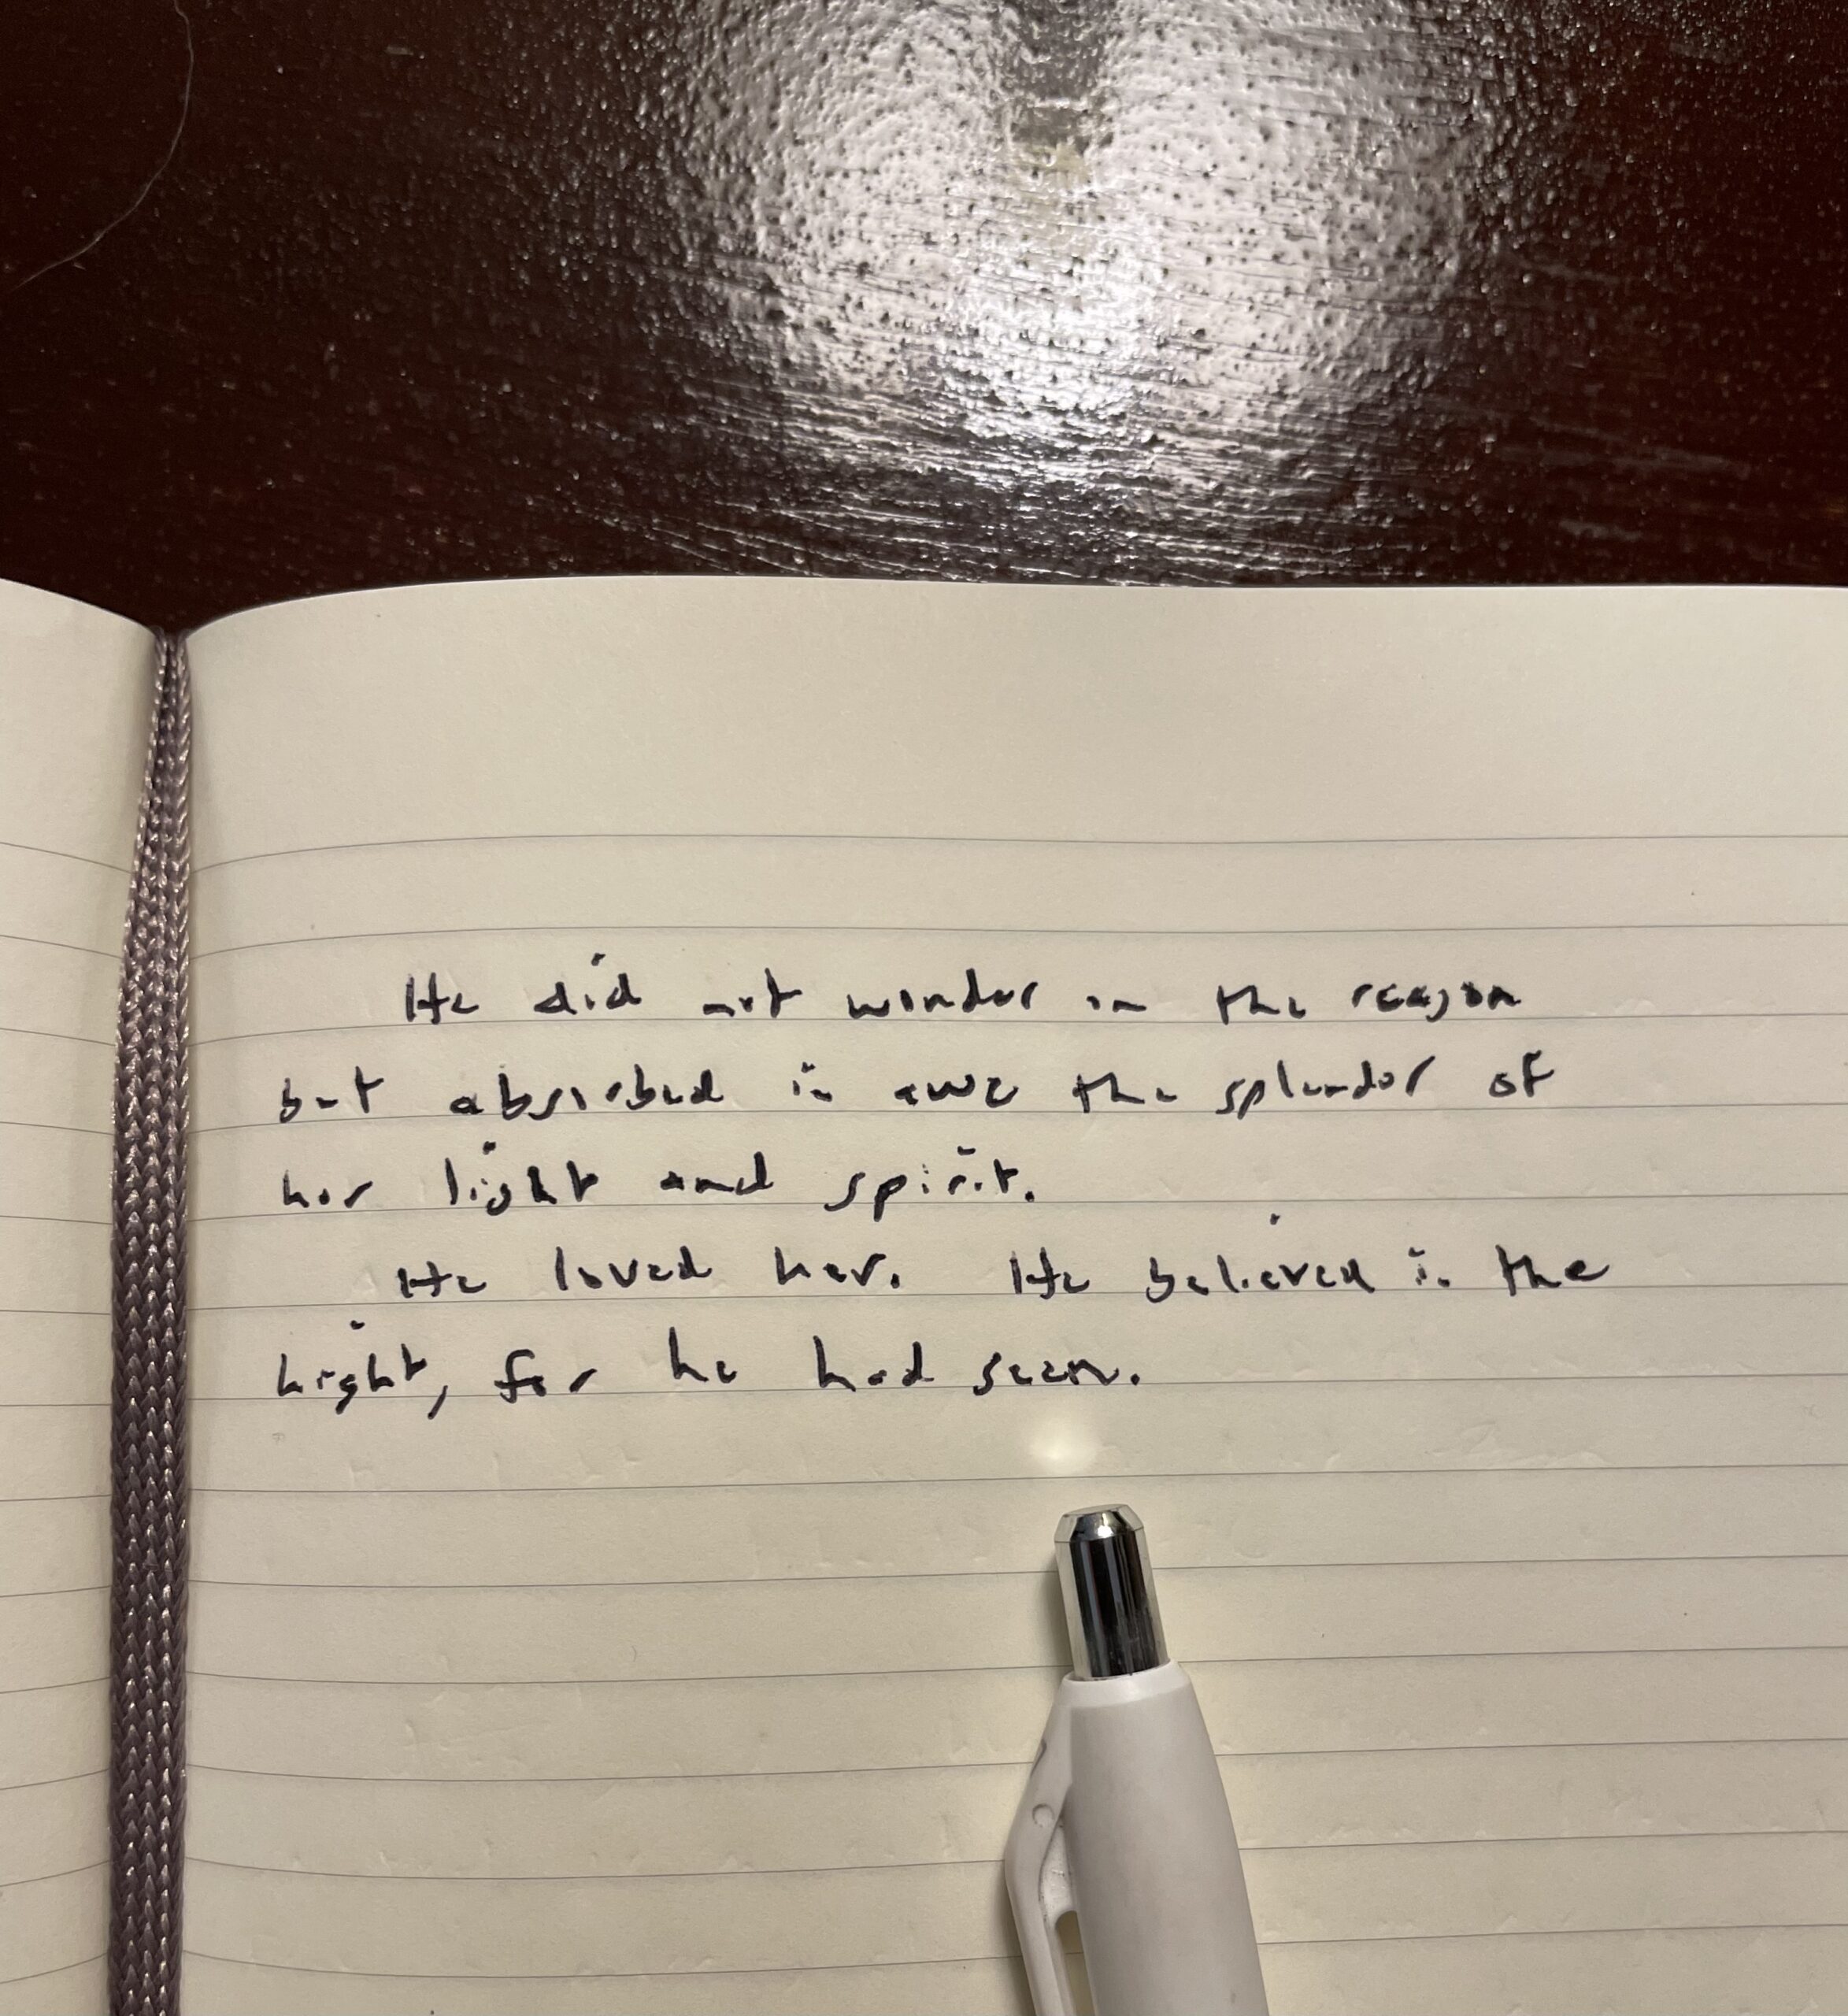 He did not wonder on the reason
but absorbed in awe the splendor of
her light and spirit.
He loved her. He believed in the
night, for he had seen.